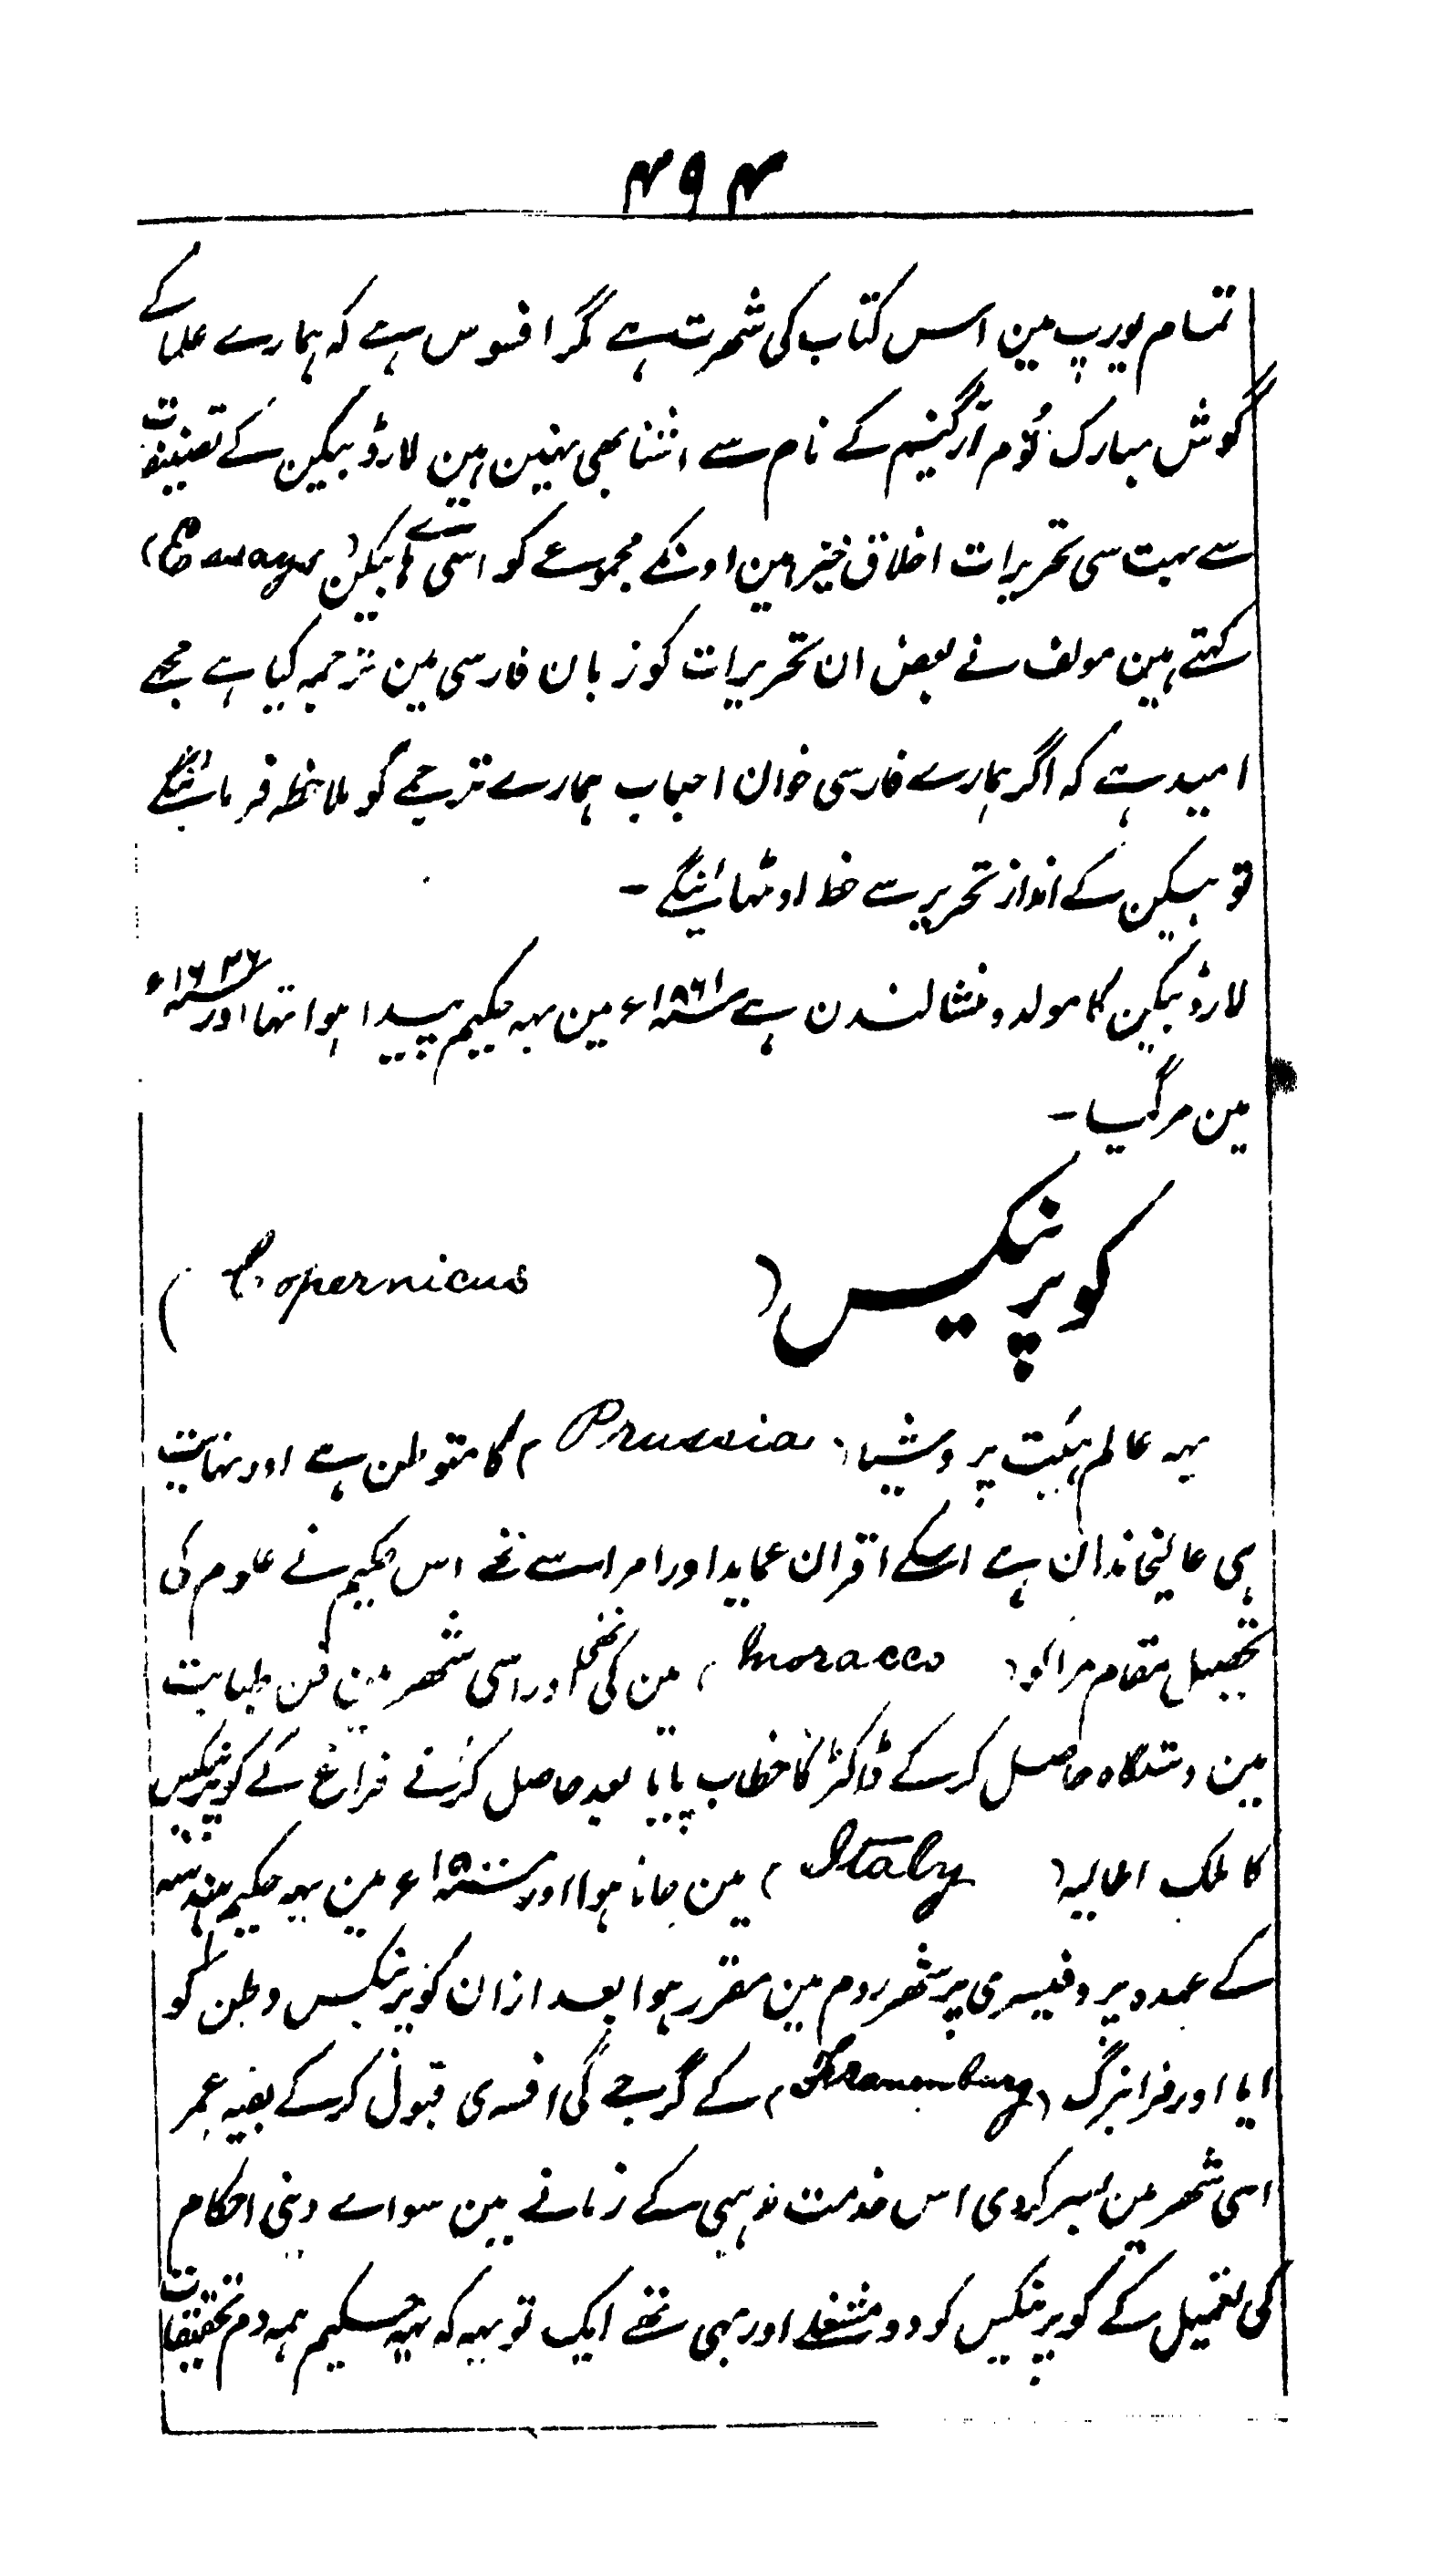 ۴۹۴
تمام یورپ مین اس کتاب کی شہرت ہے مگر افسوس ہے کہ ہمارے علما کے
گوش مبارک نُوم آرگینم کے نام سے اشنا بھی نہین ہین لارڈ بیکن کے تصنیفات
سے بہت سی تحریرات اخلاق خیز ہین اونکے مجموعے کو اسی بیکن (Essays)
کہتے ہین مولف نے بعض ان تحریرات کو زبان فارسی مین ترجمہ کیا ہے مجھے
امید ہے کہ اگر ہمارے فارسی خوان احباب ہمارے ترجمے کو ملاحظہ فرمائینگے
تو بیکن کے انداز تحریر سے حظ اوٹھائینگے -
لارڈ بیکن کا مولد و منشا لندن ہے سنہ ۱۵۶۱ء مین یہہ حکیم پیدا ہوا تھا اور سنہ ۱۶۲۶ء
مین مر گیا -
کوپرنیکس (Copernicus)
یہہ عالم ہیئت پروشیا (Prussia) کا متوطن ہے اور نہایت
ہی عالیخاندان ہے اسکے اقران عماید اور امرا سے تھے اس حکیم نے علوم کی
تحصیل مقام مراکو (Moracco) مین کی تھی اور اسی شہر مین فن طبابت
مین دستگاہ حاصل کرکے ڈاکٹر کا خطاب پایا بعد حاصل کرنے فراغ کے کوپرنیکس
کا ملک اطالیہ (Italy) مین جانا ہوا اور سنہ ۱۵۰۰ء مین یہہ حکیم ہندسہ
کے عہدہ پروفیسری پر شہر روم مین مقرر ہوا بعد ازان کوپرنیکس وطن کو
ایا اور فرانبرگ (Franenburg) کے گرجے کی افسری قبول کرکے بقیہ عمر
اسی شہر مین بسر کردی اس خدمت مذہبی کے زمانے مین سواے دینی احکام
کی تعمیل کے کوپرنیکس کو دو مشغلے اور بھی تھے ایک تو یہہ کہ یہہ حکیم ہمہ دم تحقیقات